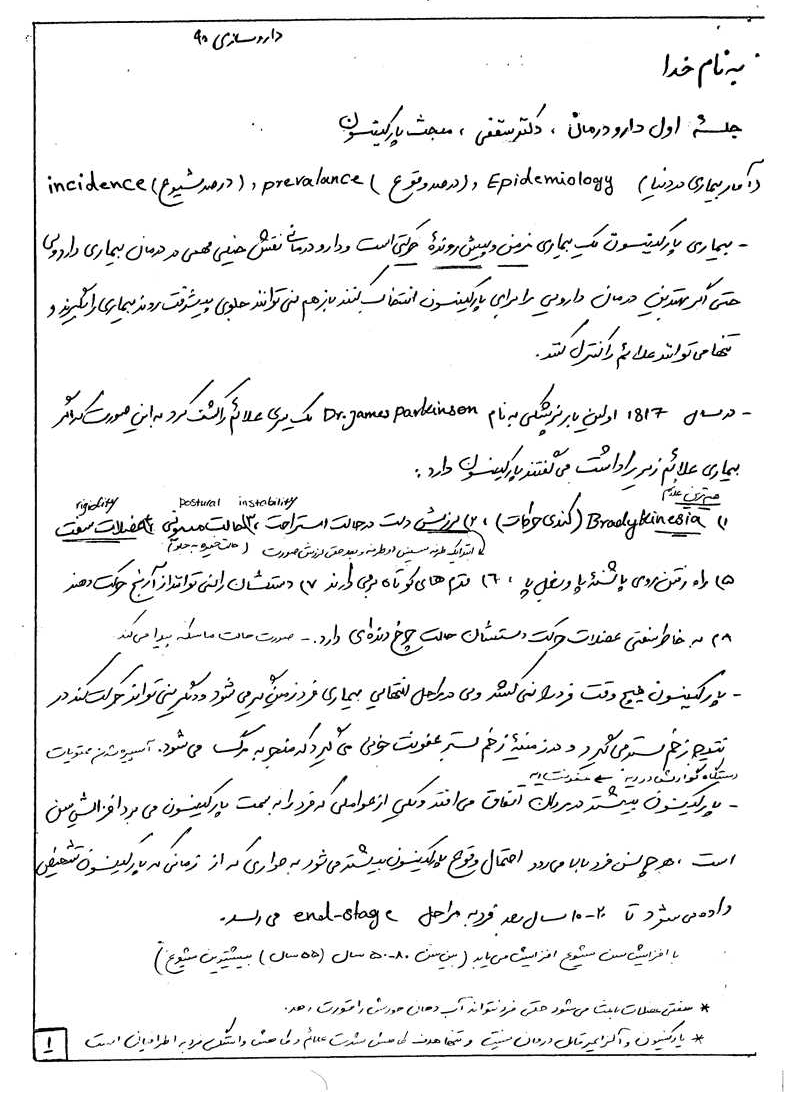 داروسازی ۹۰
به نام خدا
جلسه اول دارو درمان ، دکتر ثقفی ، مبحث پارکینسون
(آمار بیماری در دنیا) Epidemiology ، (درصد وقوع) prevalance ، (درصد شیوع) incidence
- بیماری پارکینسون یک بیماری مزمن و پیش رونده حرکتی است و دارو درمانی نقش خیلی مهمی در درمان بیماری دارد ولی
حتی اگر بهترین درمان دارویی را برای پارکینسون انتخاب کنند باز هم نمی توانند جلوی پیشرفت روند بیماری را بگیرند و
تنها می توانند علائم را کنترل کنند.
- در سال 1817 اولین بار پزشکی به نام Dr.james parkinson یک سری علائم را کشف کرد به این صورت که اگر
بیماری علائم زیر را داشت می گفتند پارکینسون دارد :
مهم ترین علائم
rigidity postural instability
۱) Bradykinesia (کندی حرکات) ، ۲) لرزش دست در حالت استراحت ، ۳) حالت ۴) عضلات سفت
ابتدا یک طرفه سپس دو طرفه و بعد حتی لرزش صورت (حالت خمیده به جلو)
۵) راه رفتن روی پاشنه پا و بغل پا ، ۶) قدم های کوتاه بر می دارند ۷) دستشان را نمی توانند از آرنج حرکت دهند
۸) به خاطر سفتی عضلات حرکت دستشان حالت چرخ دنده ای دارد. - صورت حالت ماسکه پیدا می کند
- پارکینسون هیچ وقت فرد را نمی کشد ولی در مراحل انتهایی بیماری فرد زمین گیر می شود و دیگر نمی تواند حرکت کند در
نتیجه زخم بستر می گیرد و در زمینه زخم بستر عفونت خونی می گیرد که منجر به مرگ می شود. آسپیره شدن محتویات
دستگاه گوارش در ریه ← عفونت ریه
- پارکینسون بیشتر در مردان اتفاق می افتد و یکی از عواملی که فرد را به سمت پارکینسون می برد افزایش سن
است ، هر چه سن فرد بالا می رود احتمال وقوع پارکینسون بیشتر می شود به طوری که از زمانی که پارکینسون تشخیص
داده می شود تا ۲۰-۱۰ سال بعد فرد به مراحل end-stage می رسد.
با افزایش سن شیوع افزایش می یابد (بین سن ۸۰-۵۰ سال (۵۵ سال) بیشترین شیوع)
* سفتی عضلات باعث می شود حتی فرد نتواند آب دهان خودش را قورت دهد.
* پارکینسون و آلزایمر قابل درمان نیست و تنها هدف کاهش شدت علائم و کاهش وابستگی فرد به اطرافیان است
۱